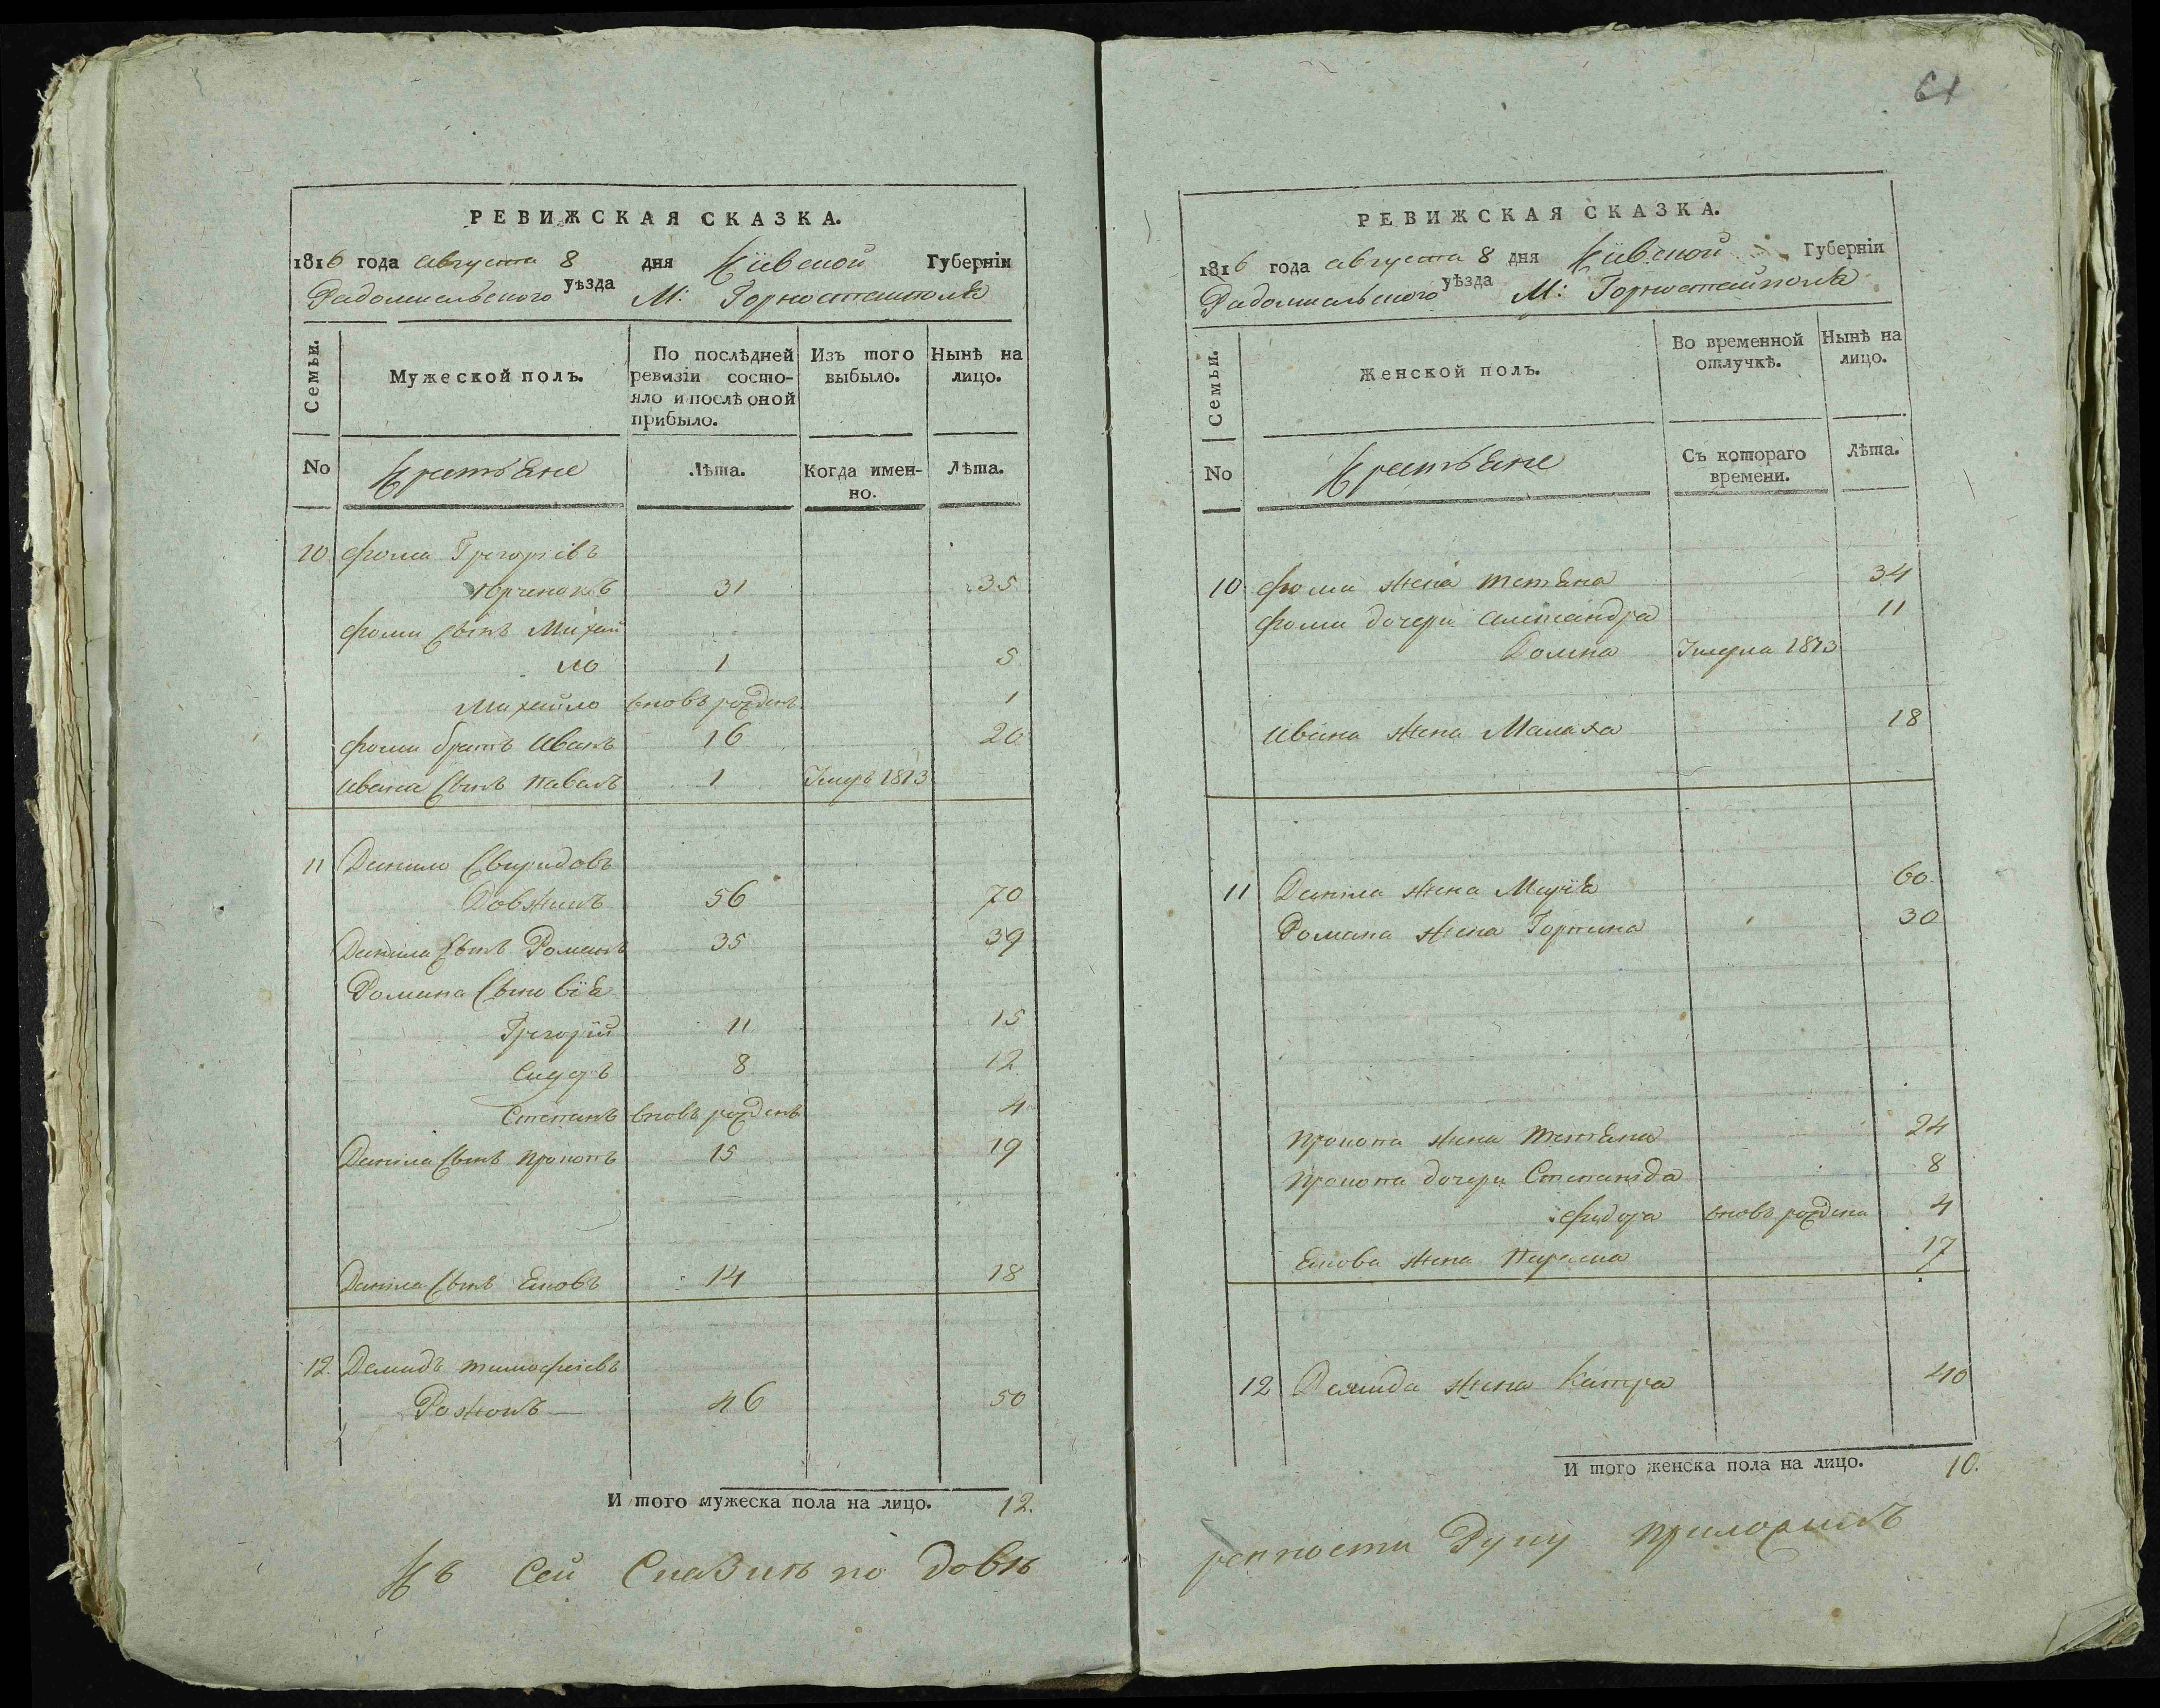 РЕВИЖСКАЯ СКАЗКА.
1816 года августа 8 дня Кіевской Губерніи
Радомисльского уѣзда М: Горностайполя
Семьи.
Мужеской полъ.
По послѣдней ревизіи состо-
яло и послѣ оной
прибыло.
Изъ того
выбыло.
Нынѣ на
лицо.
No
Крестяне
Лѣта.
Когда имен-
но.
Лѣта.
10 Фома Грегоріевъ
31 35
Фоми сынъ Михай
ло 1 5
Михайло вновь рожденъ 1
Фоми братъ Иванъ 16 20
Ивана сынъ Павелъ 1 Умеръ 1813
11 Данило Свиридовъ
Довжикъ 56 70
Данила сынъ Романъ 35 39
Романа синовія
Грегорій 11 15
Сидоръ 8 12
Степанъ вновь рожденъ 4
Данила сынъ Прокопъ 15 19
Данила сынъ Яковъ 14 18
12. Демидъ Тимофеіевъ
Рожокъ 46 50
И того мужеска пола на лицо. 12.
Къ сей сказки по довѣ
61
РЕВИЖСКАЯ СКАЗКА.
1816 года августа 8 дня Кіевской Губерніи
Радомисльского уѣзда М: Горностайполя
Семьи.
Женской полъ.
Во временной
отлучкѣ.
Нынѣ на
лицо.
No
Крестяне
Съ котораго
времени.
Лѣта.
10 Фоми жена Тетяна 34
Фоми дочери Александра 11
Домна Умерла 1813
Ивана жена Малаха 18
11 Данила жена Марія 60
Романа жена Горпина 30
Прокопа жена Тетяна 24
Прокопа дочери Степанида 8
Фидора вновь рождена 4
Якова жена Параска 17
12 Демида жена Катра 40
И того женска пола на лицо. 10.
ренности руку приложилъ